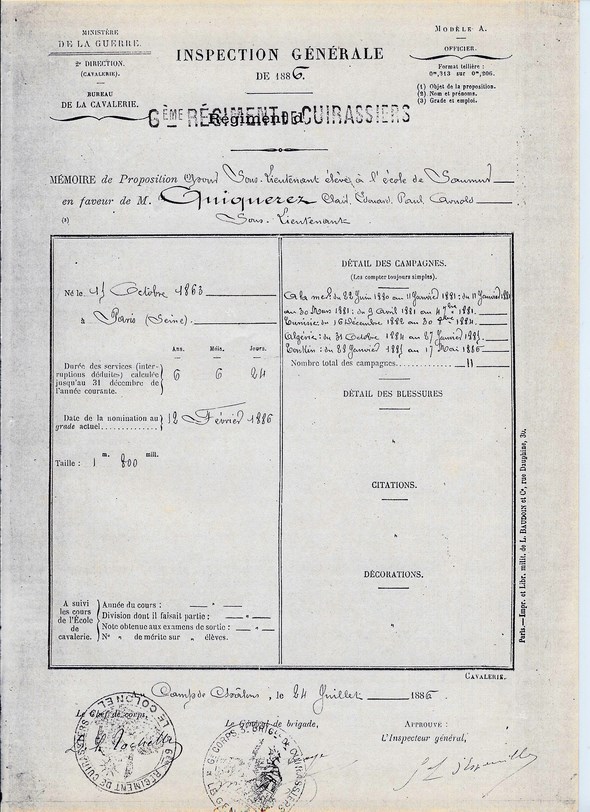 MINISTÈRE
DE LA GUERRE.
2e DIRECTION.
(CAVALERIE).
BUREAU
DE LA CAVALERIE.
INSPECTION GÉNÉRALE
DE 1886.
MODÈLE A.
OFFICIER.
Format tellière :
0m,313 sur 0m,206.
(1) Objet de la proposition.
(2) Nom et prénoms.
(3) Grade et emploi.
6ÈME RÉGIMENT DE CUIRASSIERS
Régiment d
MÉMOIRE de Proposition pour Sous-Lieutenant élève à l'école de Saumur
en faveur de M. Quiquerez Edouard, Paul, Arnold
(3) Sous-Lieutenant
Né le 15 Octobre 1863
à Paris (Seine).
Ans. Mois. Jours.
Durée des services (inter-
ruptions déduites) calculée
jusqu'au 31 décembre de
l'année courante.
6 6 24
Date de la nomination au
grade actuel 12 Février 1886
m. mill.
Taille : 1 800
A suivi
les cours
de l'École
de
cavalerie.
Année du cours : — " —
Division dont il faisait partie : — " —
Note obtenue aux examens de sortie : — " —
N° " de mérite sur " élèves.
DÉTAIL DES CAMPAGNES.
(Les compter toujours simples).
A la mer: du 22 Juin 1880 au 11 Janvier 1881: du 11 Janvier 1881
au 30 Mars 1881: du 9 Avril 1881 au 1881.
Tunisie: du 16 Décembre 1882 au 30 1884.
Algérie: du 31 Octobre 1884 au 27 Janvier 1885.
Tonkin: du 28 Janvier 1885 au 17 Mai 1886
Nombre total des campagnes 11
DÉTAIL DES BLESSURES
"
CITATIONS.
"
DÉCORATIONS.
"
Paris.—Impr. et Libr. milit. de L. BAUDOIN et Ce, rue Dauphine, 30.
CAVALERIE.
Au Camp de Châlons, le 24 Juillet 1886
Le Chef de corps,
Le Général de brigade,
APPROUVÉ :
L'Inspecteur général,
LE COLONEL
6e RÉGIMENT DE CUIRASSIERS